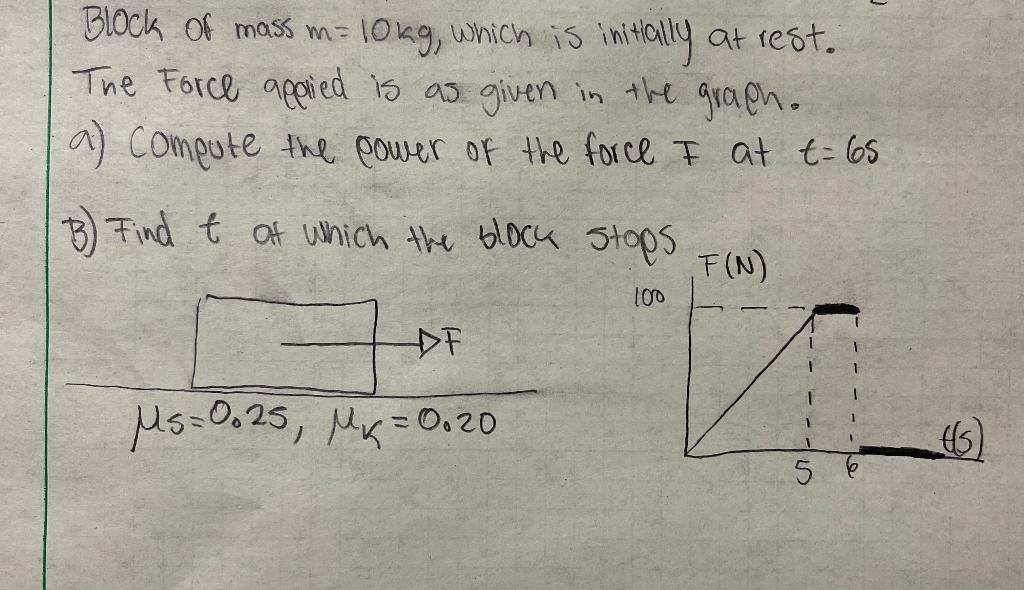 Block of mass m = 10kg, which is initially at rest.
The Force applied is as given in the graph.
a) Compute the power of the force F at t = 6s
B) Find t at which the block stops
F(N)
100
F
μs = 0.25, μk = 0.20
t(s)
5 6